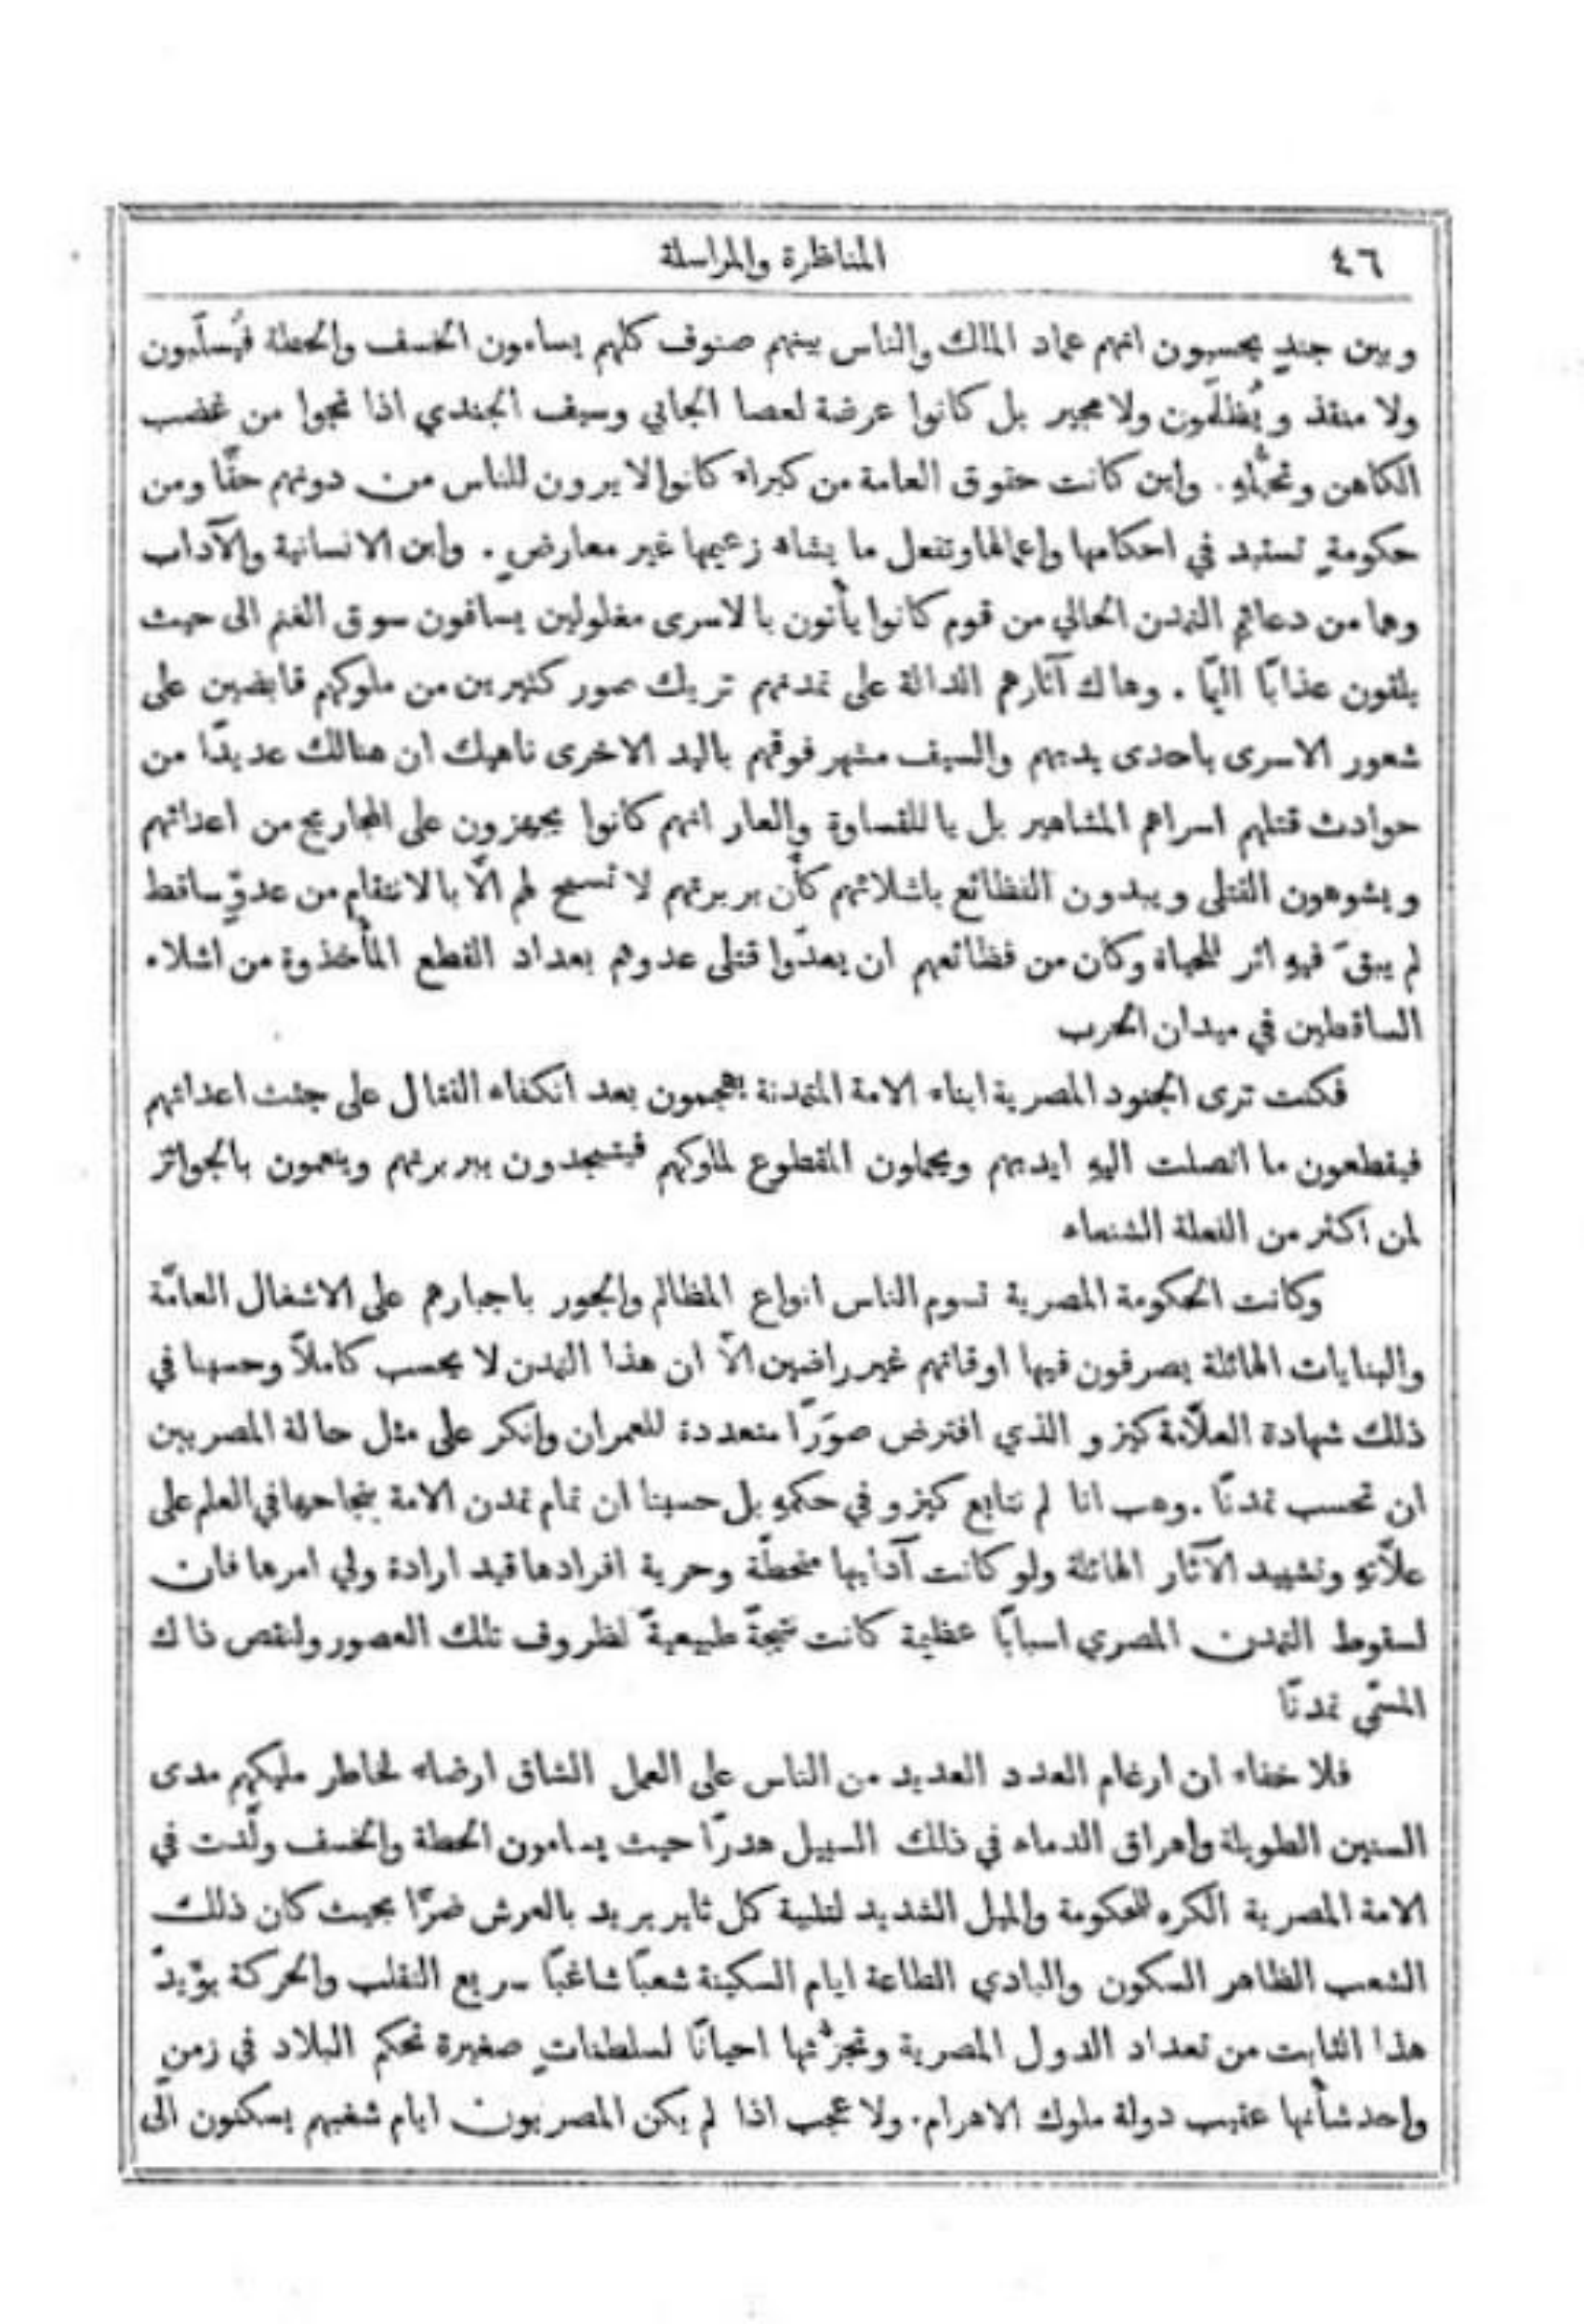 ٤٦
المناظرة والمراسلة
وبين جندٍ يحسبون انهم عماد الملك والناس بينهم صنوف كلهم يسامون الخسف والحطة فيُسلَبون
ولا منقذ ويُظلَمون ولا مجير بل كانوا عرضة لعصا الجابي وسيف الجندي اذا نجوا من غضب
الكاهن وتحيُّلهِ. واين كانت حقوق العامة من كبراء كانوا لا يرون للناس من دونهم حقًّا ومن
حكومةٍ تستبد في احكامها واعمالها وتفعل ما يشاء زعيمها غير معارضٍ. واين الانسانية والآداب
وهما من دعائم التمدن الحالي من قوم كانوا يأتون بالاسرى مغلولين يساقون سوق الغنم الى حيث
يلقون عذابًا اليمًا. وهاك آثارهم الدالة على تمدنهم تريك صور كثيرين من ملوكهم قابضين على
شعور الاسرى باحدى يديهم والسيف مشهر فوقهم باليد الاخرى ناهيك ان هنالك عديدًا من
حوادث قتلهم اسراهم المشاهير بل يا للقساوة والعار انهم كانوا يجهزون على المجاريح من اعدائهم
ويشوهون القتلى ويبدون الفظائع باشلائهم كأن بربرتهم لا تسمح لهم الَّا بالانتقام من عدوٍّ ساقط
لم يبقَ فيهِ اثر للحياة وكان من فظائعهم ان يعدّوا قتلى عدوهم بعداد القطع المأخوذة من اشلاء
الساقطين في ميدان الحرب
فكنت ترى الجنود المصرية ابناء الامة المتمدنة يهجمون بعد انكفاء القتال على جثث اعدائهم
فيقطعون ما اتصلت اليهِ ايديهم ويحملون المقطوع لملوكهم فيتمجدون ببربرتهم وينعمون بالجوائز
لمن اكثر من الفعلة الشنعاء
وكانت الحكومة المصرية تسوم الناس انواع المظالم والجور باجبارهم على الاشغال العامَّة
والبنايات الهائلة يصرفون فيها اوقاتهم غير راضين الَّا ان هذا التمدن لا يحسب كاملاً وحسبنا في
ذلك شهادة العلَّامة كيزو الذي افترض صوَرًا متعددة للعمران وانكر على مثل حالة المصريين
ان تحسب تمدنًا. وهب انا لم نتابع كيزو في حكمهِ بل حسبنا ان تمام تمدن الامة بنجاحها في العلم على
علَّاتهِ وتشييد الآثار الهائلة ولو كانت آدابها منحطَّة وحرية افرادها قيد ارادة ولي امرها فان
لسقوط التمدن المصري اسبابًا عظيمة كانت نتيجةً طبيعيةً لظروف تلك العصور ولنقص ذاك
المسمَّى تمدنًا
فلا خفاء ان ارغام العدد العديد من الناس على العمل الشاق ارضاء لخاطر مليكهم مدى
السنين الطويلة واهراق الدماء في ذلك السبيل هدرًا حيث يسامون الحطة والخسف ولَّدت في
الامة المصرية الكره للحكومة والميل الشديد لتلبية كل ثاير يريد بالعرش ضرًّا بحيث كان ذلك
الشعب الظاهر السكون والبادي الطاعة ايام السكينة شعبًا شاغبًا سريع التقلب والحركة يؤيد
هذا الثابت من تعداد الدول المصرية وتجزئتها احيانًا لسلطنات صغيرة تحكم البلاد في زمنٍ
واحد شأنها عقيب دولة ملوك الاهرام. ولا عجب اذا لم يكن المصريون ايام شغبهم يسكنون الى